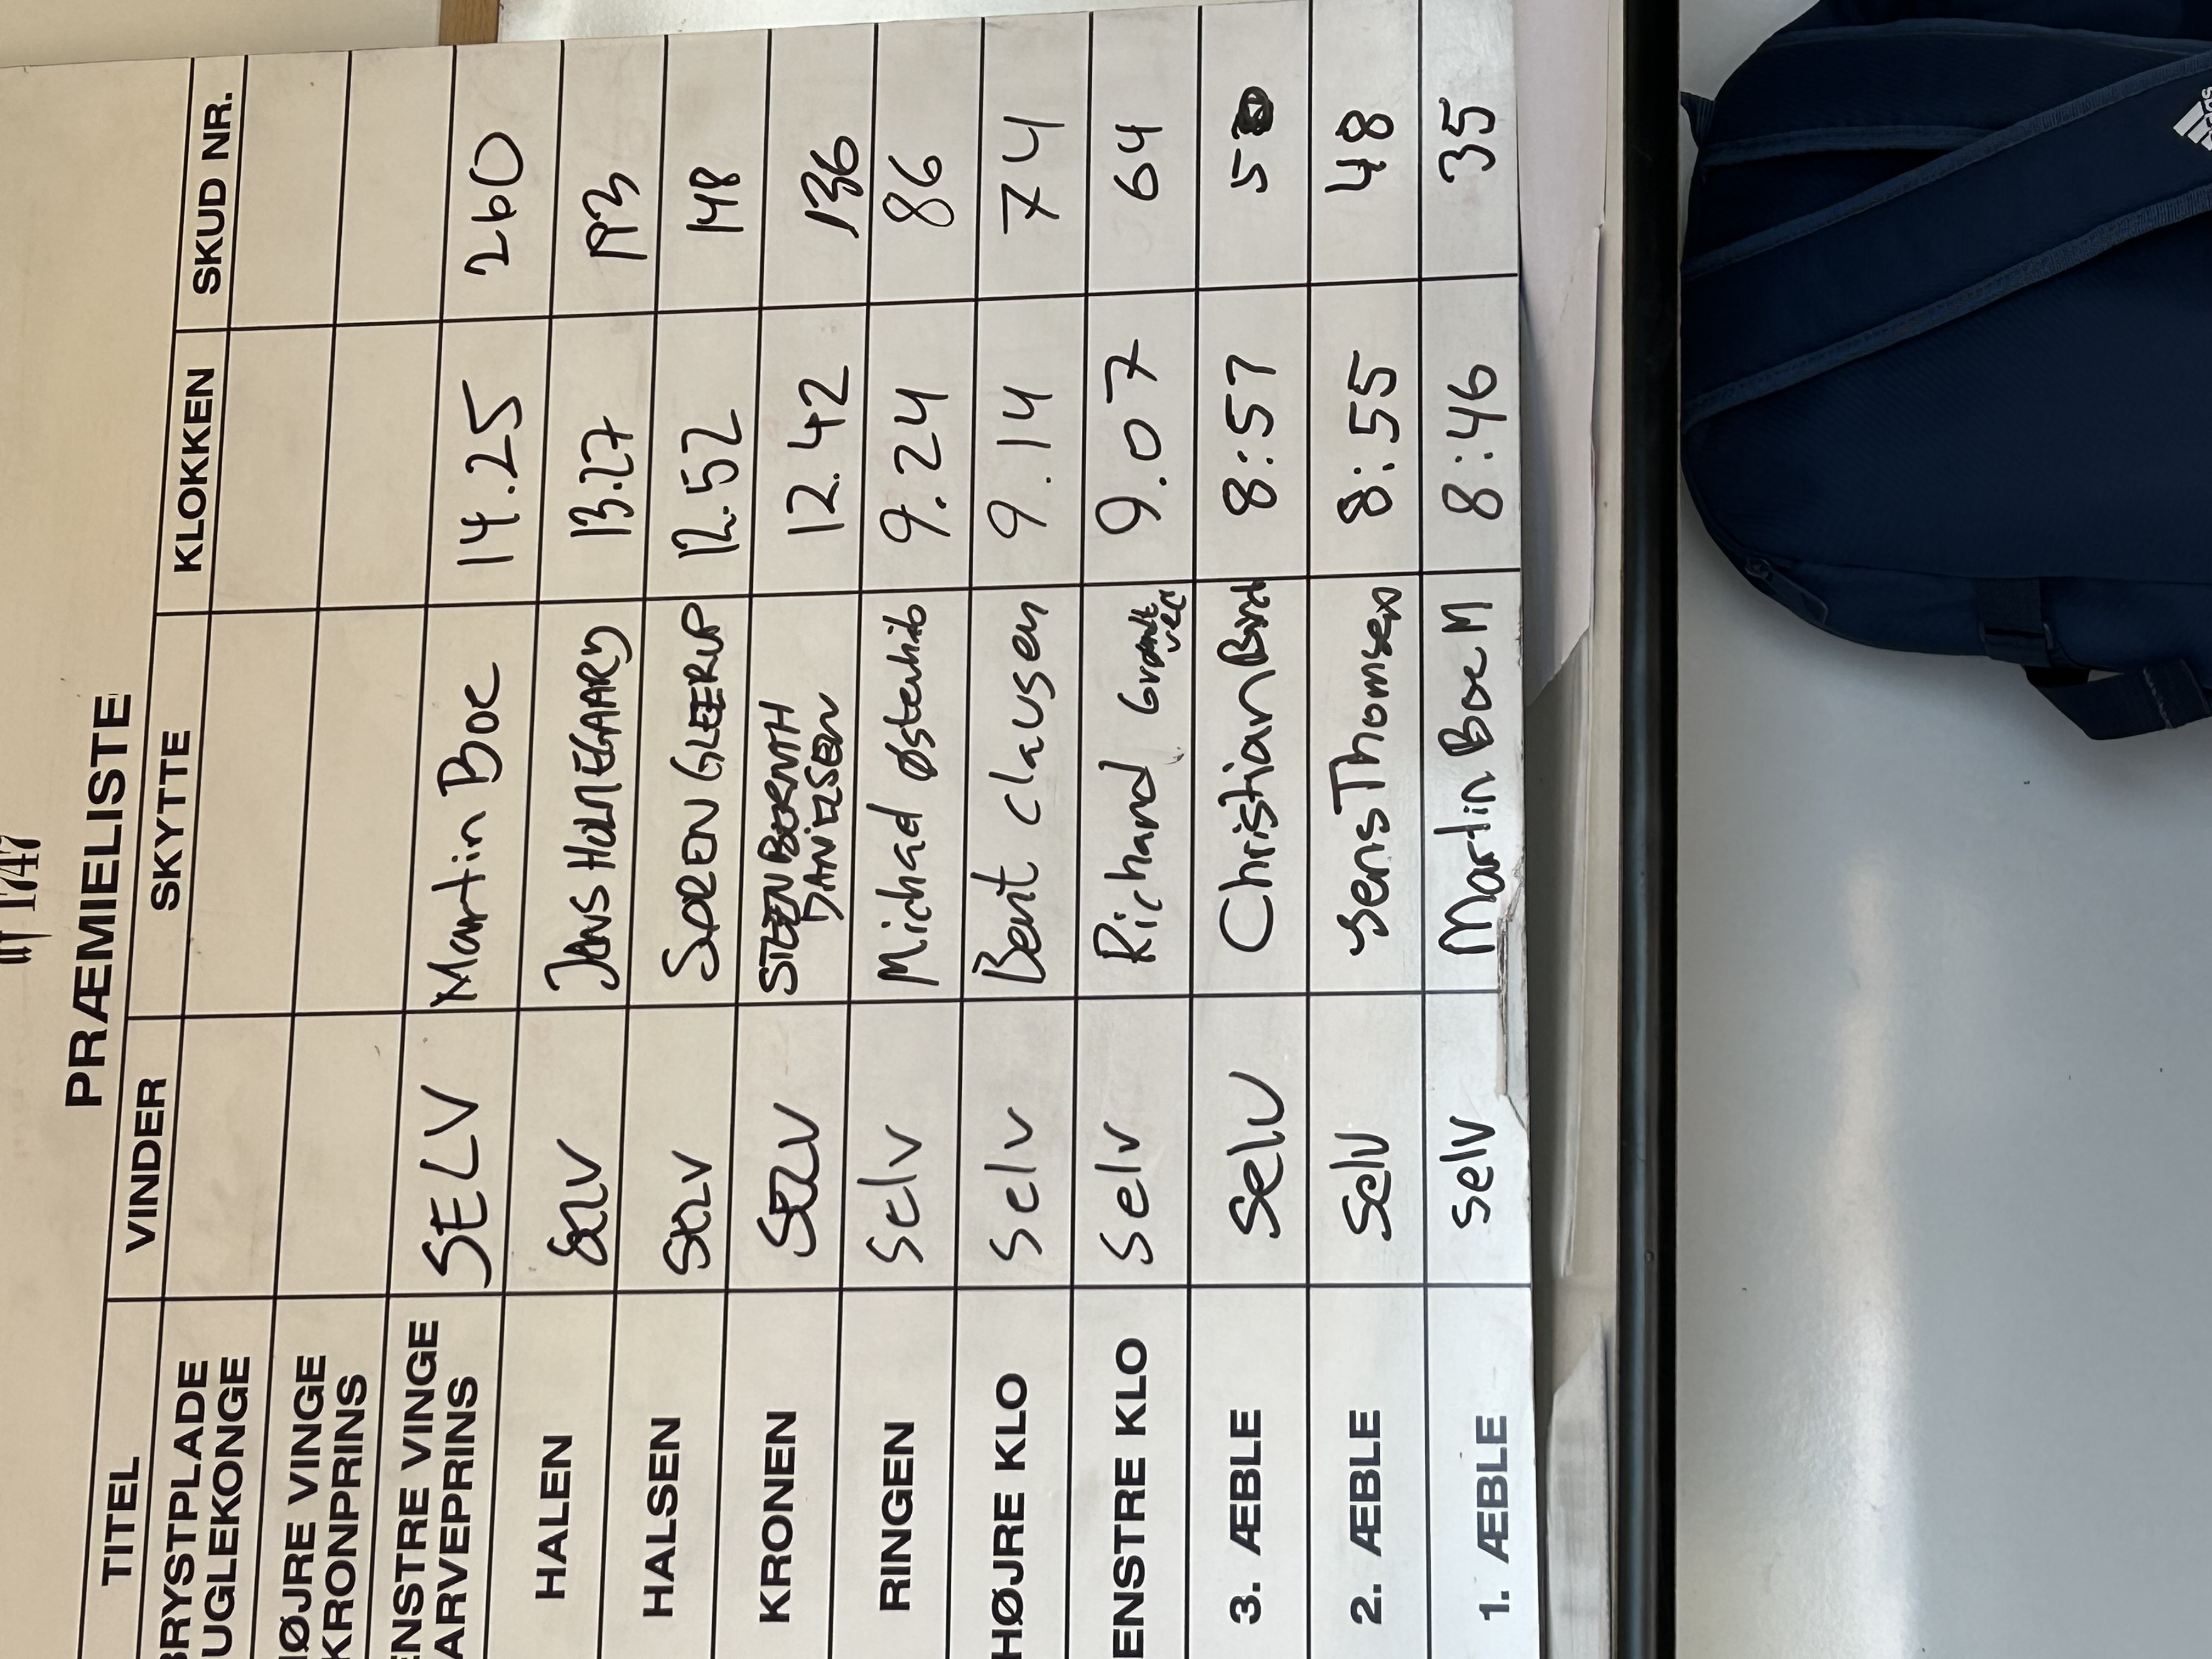 af 1747
PRÆMIELISTE
TITEL VINDER SKYTTE KLOKKEN SKUD NR.
BRYSTPLADE
UGLEKONGE
HØJRE VINGE
KRONPRINS
ENSTRE VINGE
ARVEPRINS SELV Martin Boe 14.25 260
HALEN SELV JENS HOLMEGAARD 13.27 193
HALSEN SELV SØREN GLEERUP 12.52 148
KRONEN SELV STEEN DANIELSEN 12.42 136
RINGEN Selv Michael 9.24 86
HØJRE KLO Selv Bent Clausen 9.14 74
ENSTRE KLO Selv Richard 9.07 64
3. ÆBLE Selv Christian 8:57
2. ÆBLE Selv Jens Thomsen 8:55 48
1. ÆBLE selv Martin Boe M 8:46 35